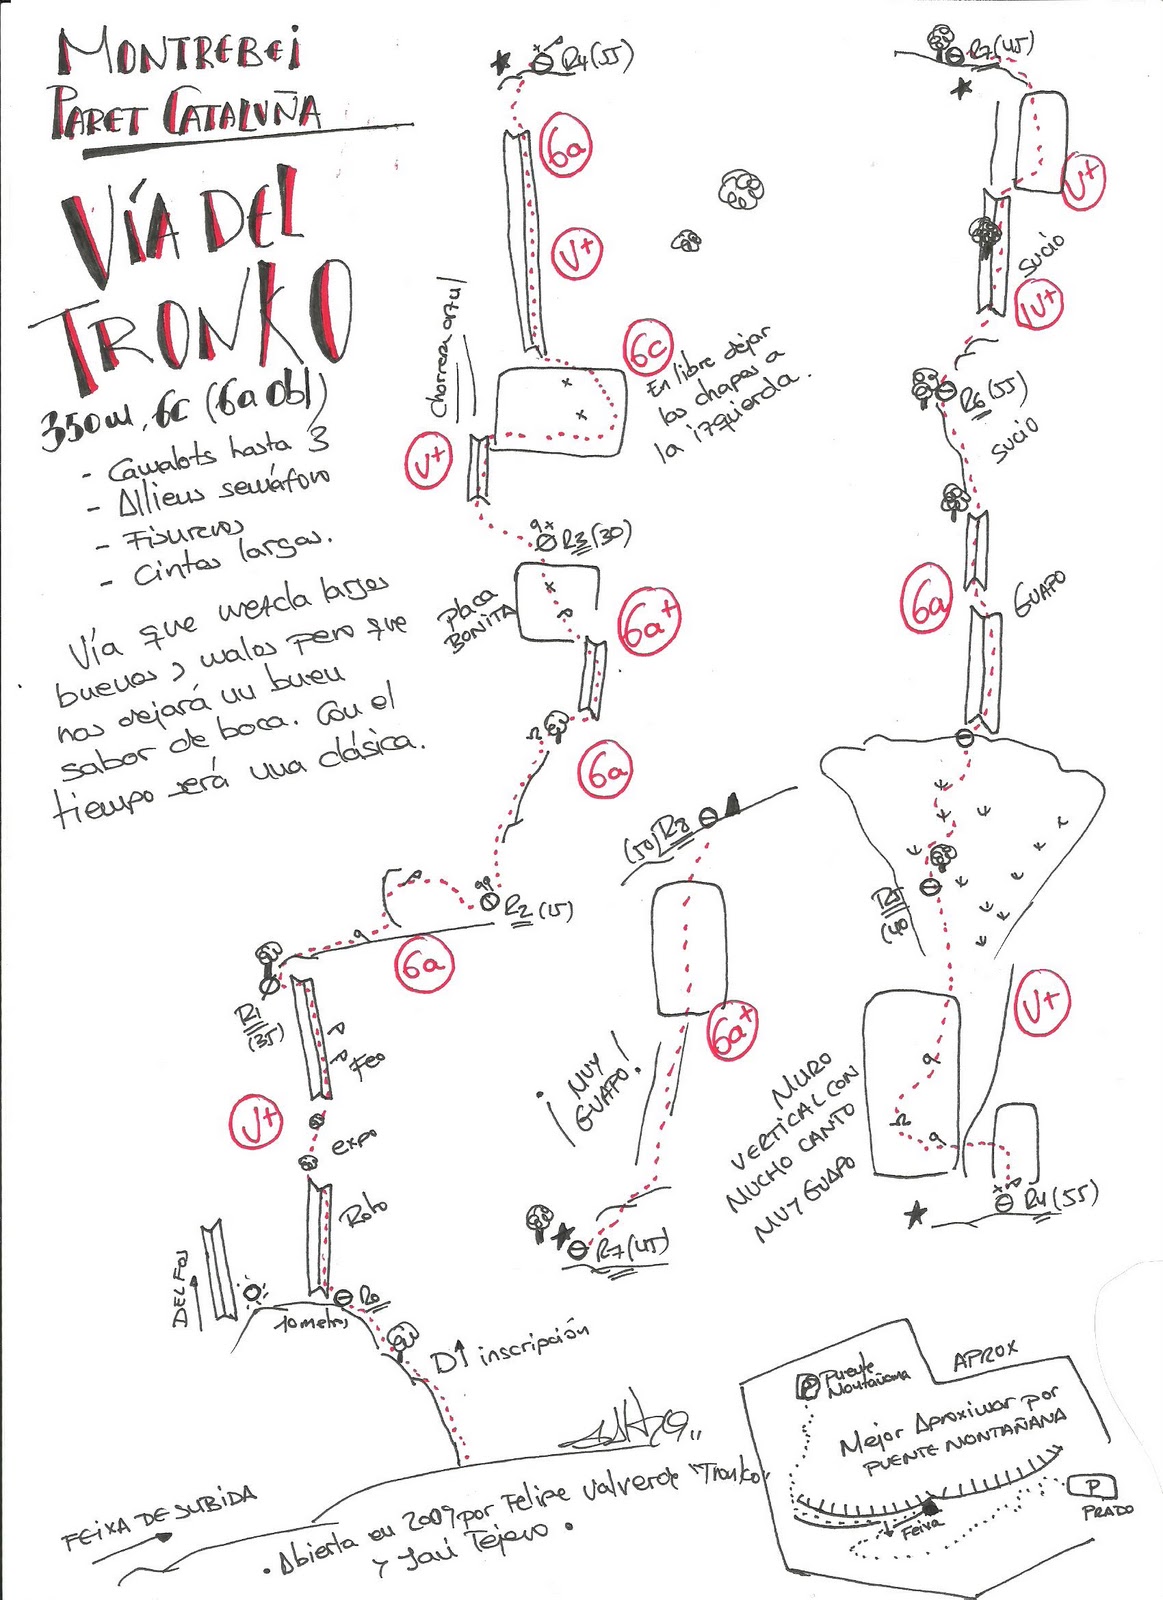 MONTREBEI
PARET CATALUÑA
VÍA DEL
TRONKO
350m, 6c (6a Obl)
- Camalots hasta 3
- Aliens semáforo
- Fisureros
- Cintas largas.
Vía que mezcla largos
buenos y malos pero que
nos dejará un buen
sabor de boca. Con el
tiempo será una clásica.
R4 (55)
6a
V+
chorrera azul
6c
En libre dejar
las chapas a
la izquierda.
V+
R3 (30)
placa
BONITA
6a+
6a
R2 (15)
6a
R1
(35)
Feo
V+
expo
Roto
DEL FOJ
10 metros
R0
D↑ inscripción
FEIXA DE SUBIDA
• Abierta en 2009 por Felipe Valverde "Tronko"
y Javi Tejero •
R7 (45)
V+
sucio
IV+
R6 (55)
sucio
6a
GUAPO
R5
(40
V+
MURO
VERTICAL CON
MUCHO CANTO
MUY GUAPO
R4 (55)
(50) R8
6a+
¡MUY
GUAPO!
R7 (45)
APROX
P
Puente
Montañana
Mejor Aproximar por
PUENTE MONTAÑANA
Feixa
P
PRADO